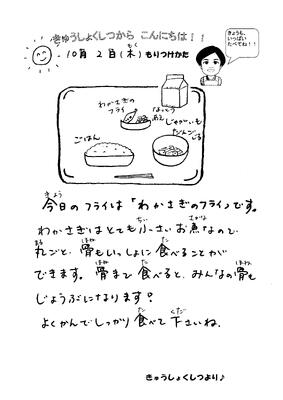 きゅうしょくしつから こんにちは！！
きょうも、
いっぱい
たべてね！！
10月 2日(木) もりつけかた
わかさぎの
フライ
なっとう
あえ
じゃがいも
だんごじる
ごはん
今日のフライは「わかさぎのフライ」です。
わかさぎはとても小さいお魚なので
丸ごと、骨もいっしょに食べることが
できます。骨まで食べると、みんなの骨も
じょうぶになります？
よくかんでしっかり食べて下さいね。
きゅうしょくしつより♪